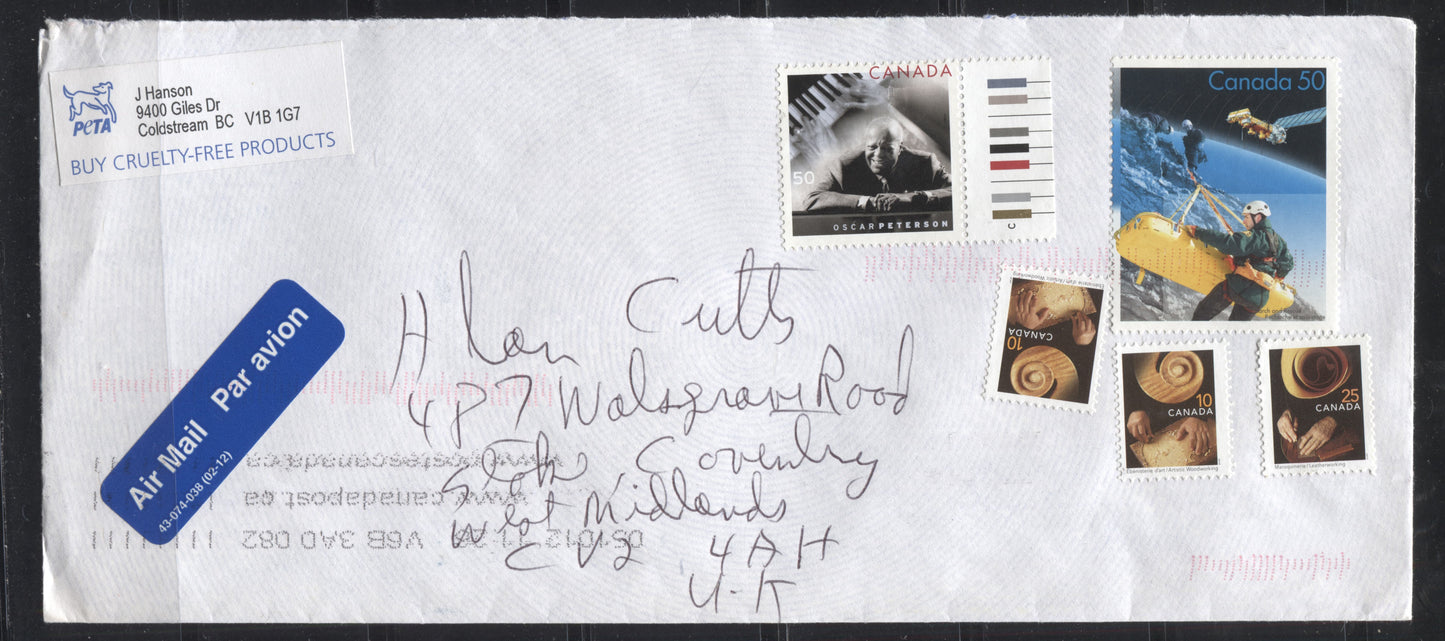 PeTA
J Hanson
9400 Giles Dr
Coldstream BC V1B 1G7
BUY CRUELTY-FREE PRODUCTS
CANADA
50
OSCAR PETERSON
C
Canada 50
Search and Rescue
Ébénisterie d'art / Artistic Woodworking
CANADA
10
10
CANADA
Ébénisterie d'art / Artistic Woodworking
25
CANADA
Maroquinerie / Leatherworking
Air Mail Par avion
43-074-038 (02-12)
Alan Cutts
487 Walsgrave Road
Stoke Coventry
West Midlands
CV2 4AH
U-K
www.postescanada.ca
www.canadapost.ca
V6B 3A0 082